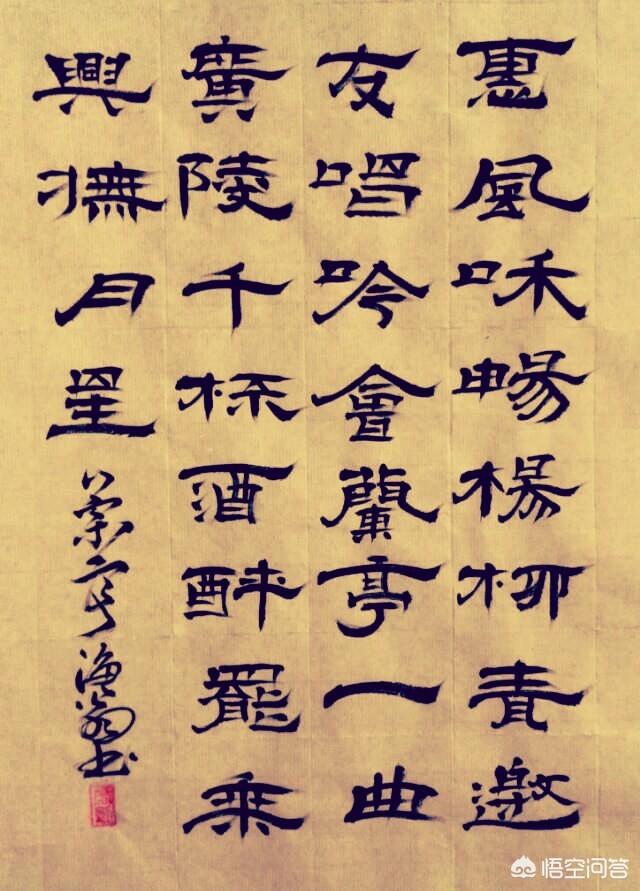 惠風和暢楊柳青邀
友唱吟會蘭亭一曲
廣陵千杯酒醉罷乘
興撫月星
漁翁书
悟空问答